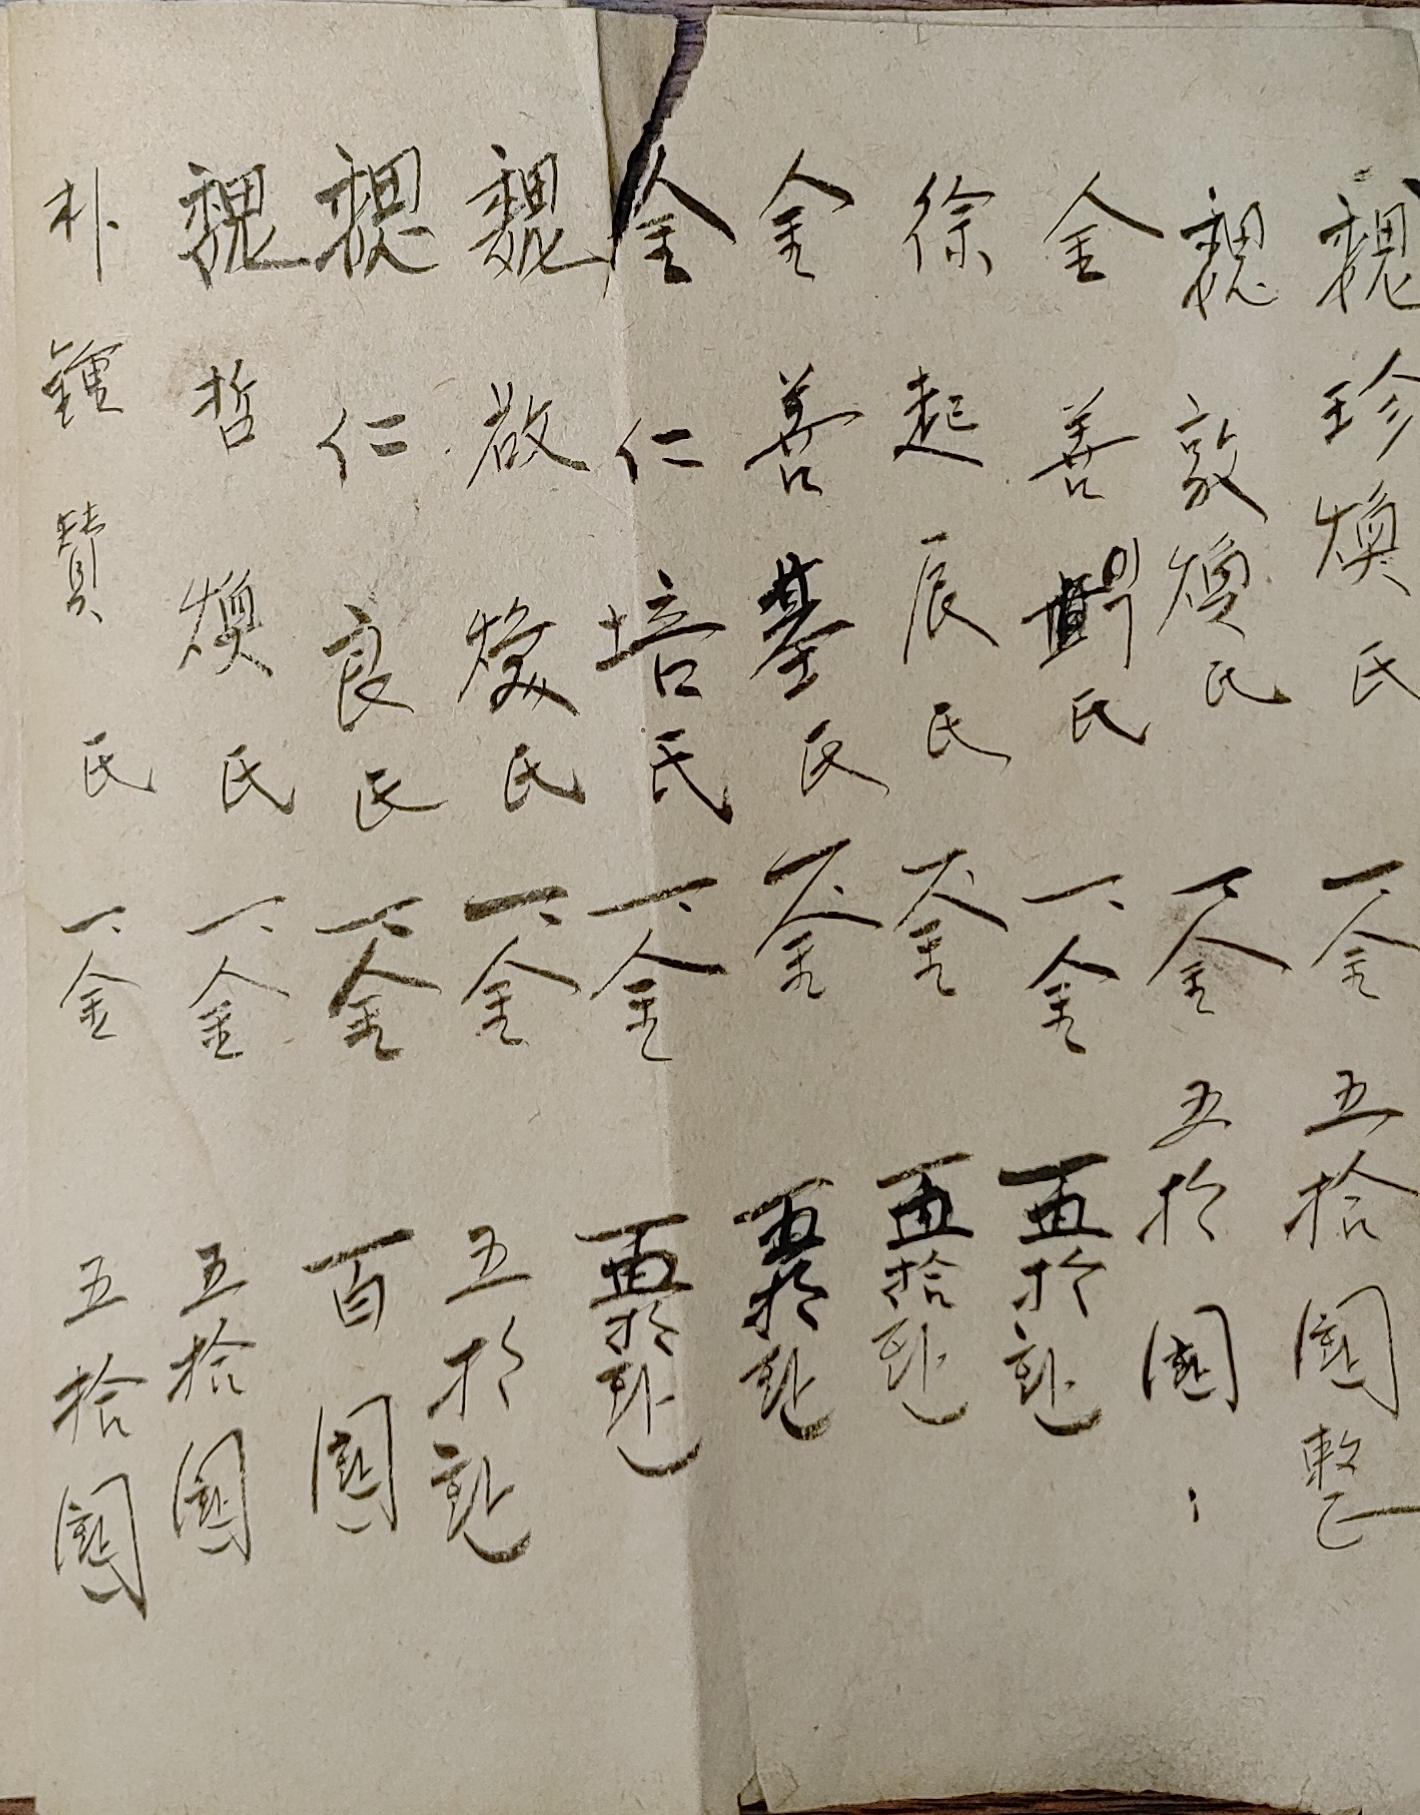 魏珍煥氏 一金 五拾圓整
魏敦煥氏 一金 五拾圓
金善 氏 一金 百拾圓
徐起辰氏 一金 百拾圓
金善基氏 一金 拾圓
金仁培氏 一金 百拾圓
魏啟煥氏 一金 五拾圓
魏仁良氏 一金 百圓
魏哲煥氏 一金 五拾圓
朴鍾贊氏 一金 五拾圓